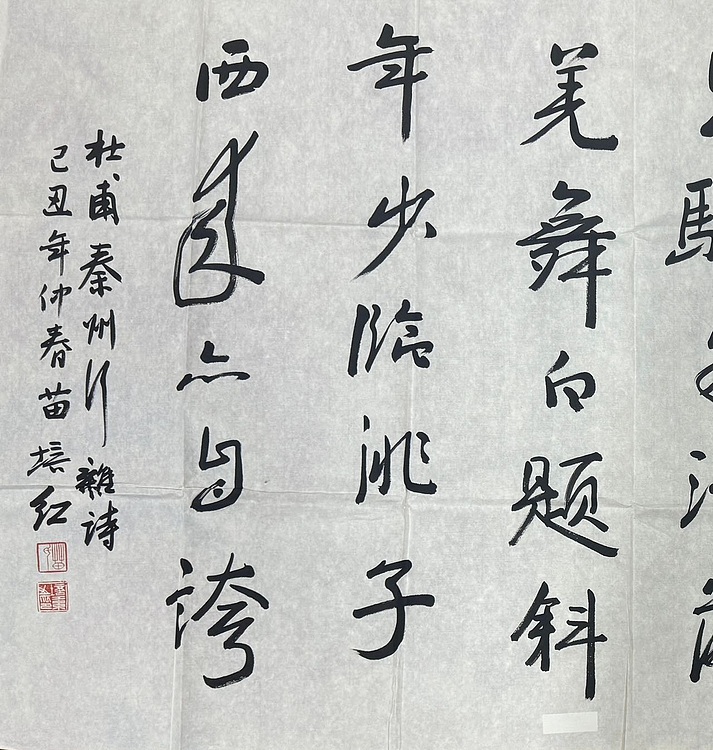 羌舞白题斜
年少临洮子
西来亦自誇
杜甫秦州行雜詩
己丑年仲春苗培红